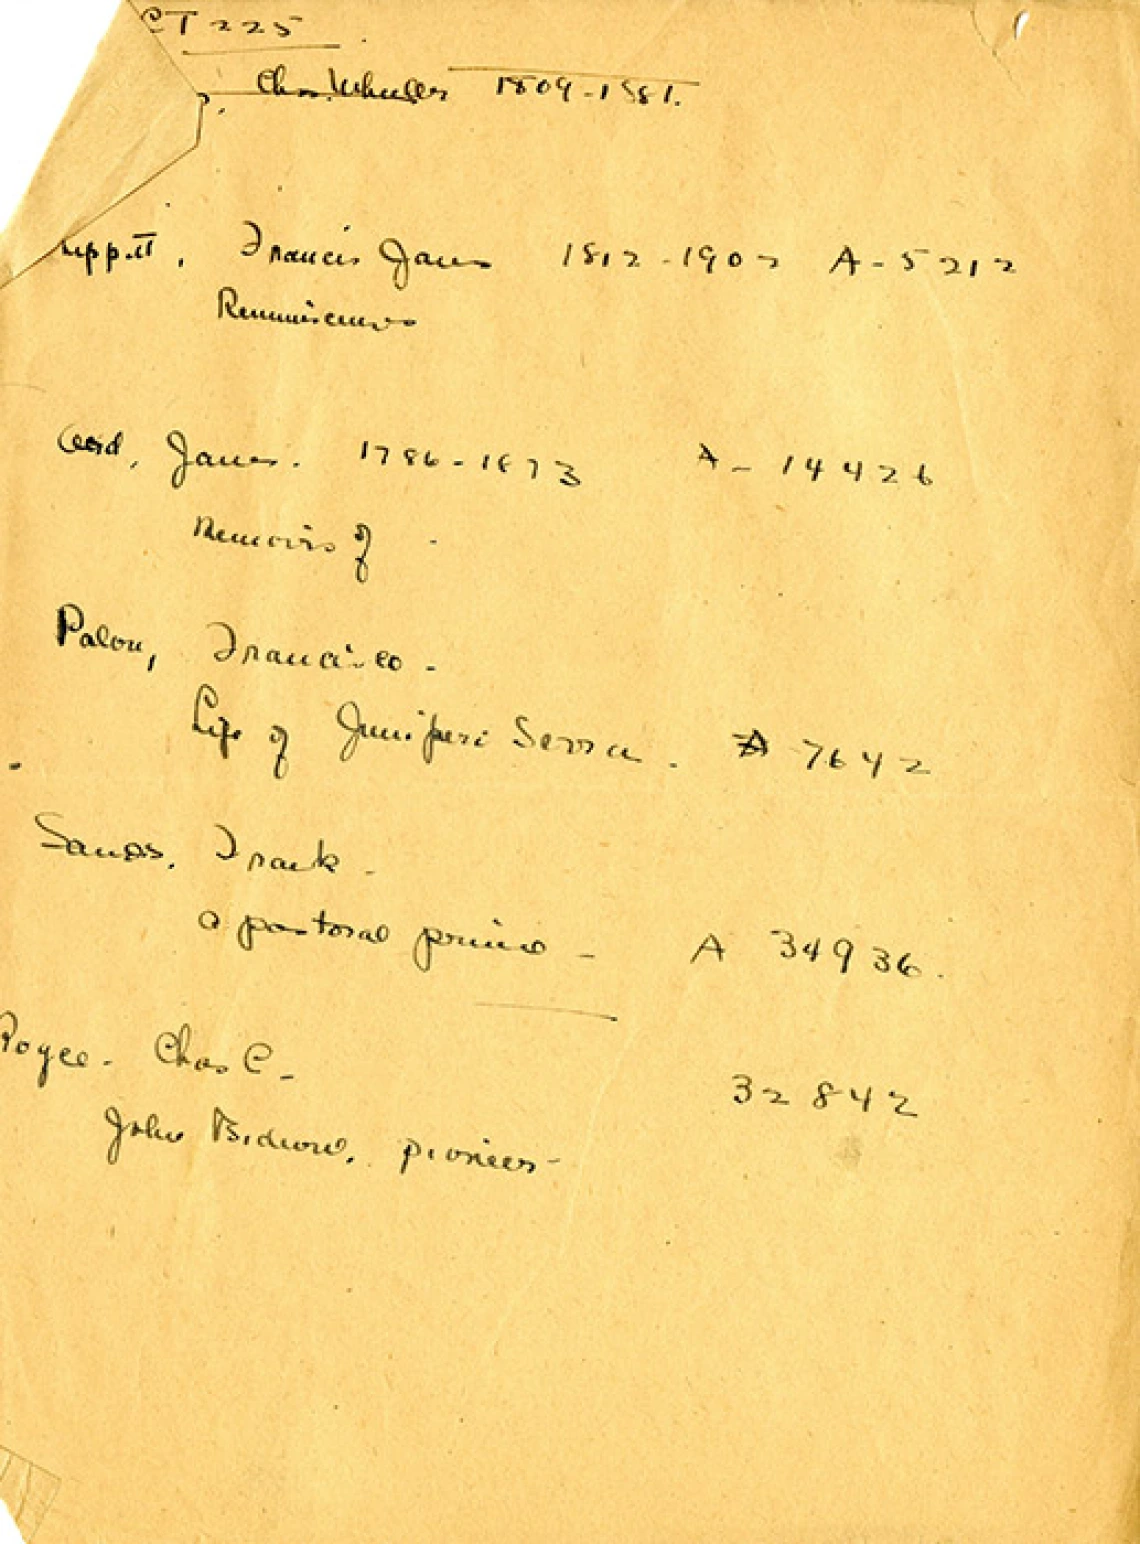 CT 225
Chas. Wheeler 1809-1881.
Lippitt, Francis James 1812-1902 A-5212
Reminiscences
James. 1786-1873 A-14426
Memoirs of -
Palou, Francisco -
Life of Juniperi Serra. A 7642
Sands. Frank -
A pastoral prince - A 34936.
Royce - Chas C - 32842
John Bidwell, pioneer -